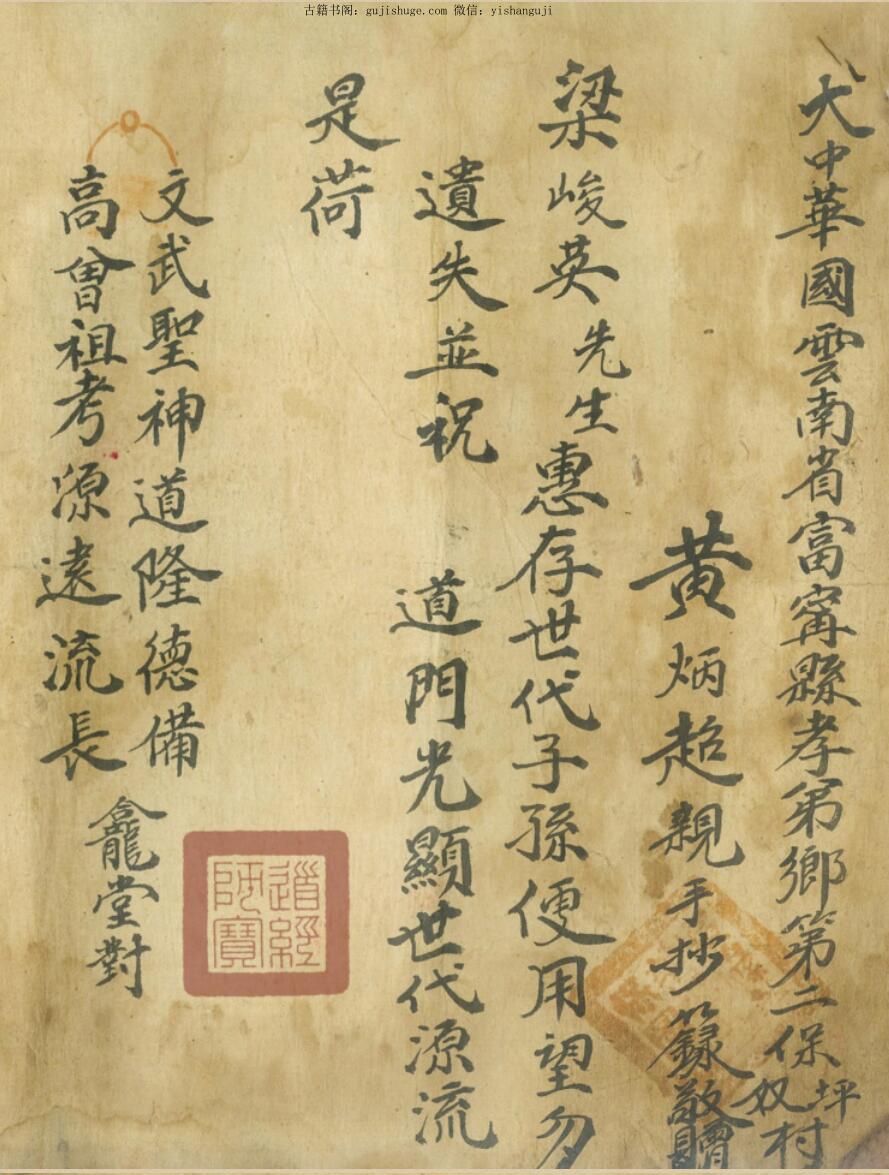 古籍书阁：gujishuge.com 微信：yishanguji
大中華國雲南省富寗縣孝弟鄉第二保坪奴村
黃炳超親手抄籙敬贈
梁峻英先生惠存世代子孫便用望勿
遺失並祝 道門光顯世代源流
是荷
文武聖神道隆德備
高曾祖考源遠流長
龕堂對
道經師寶